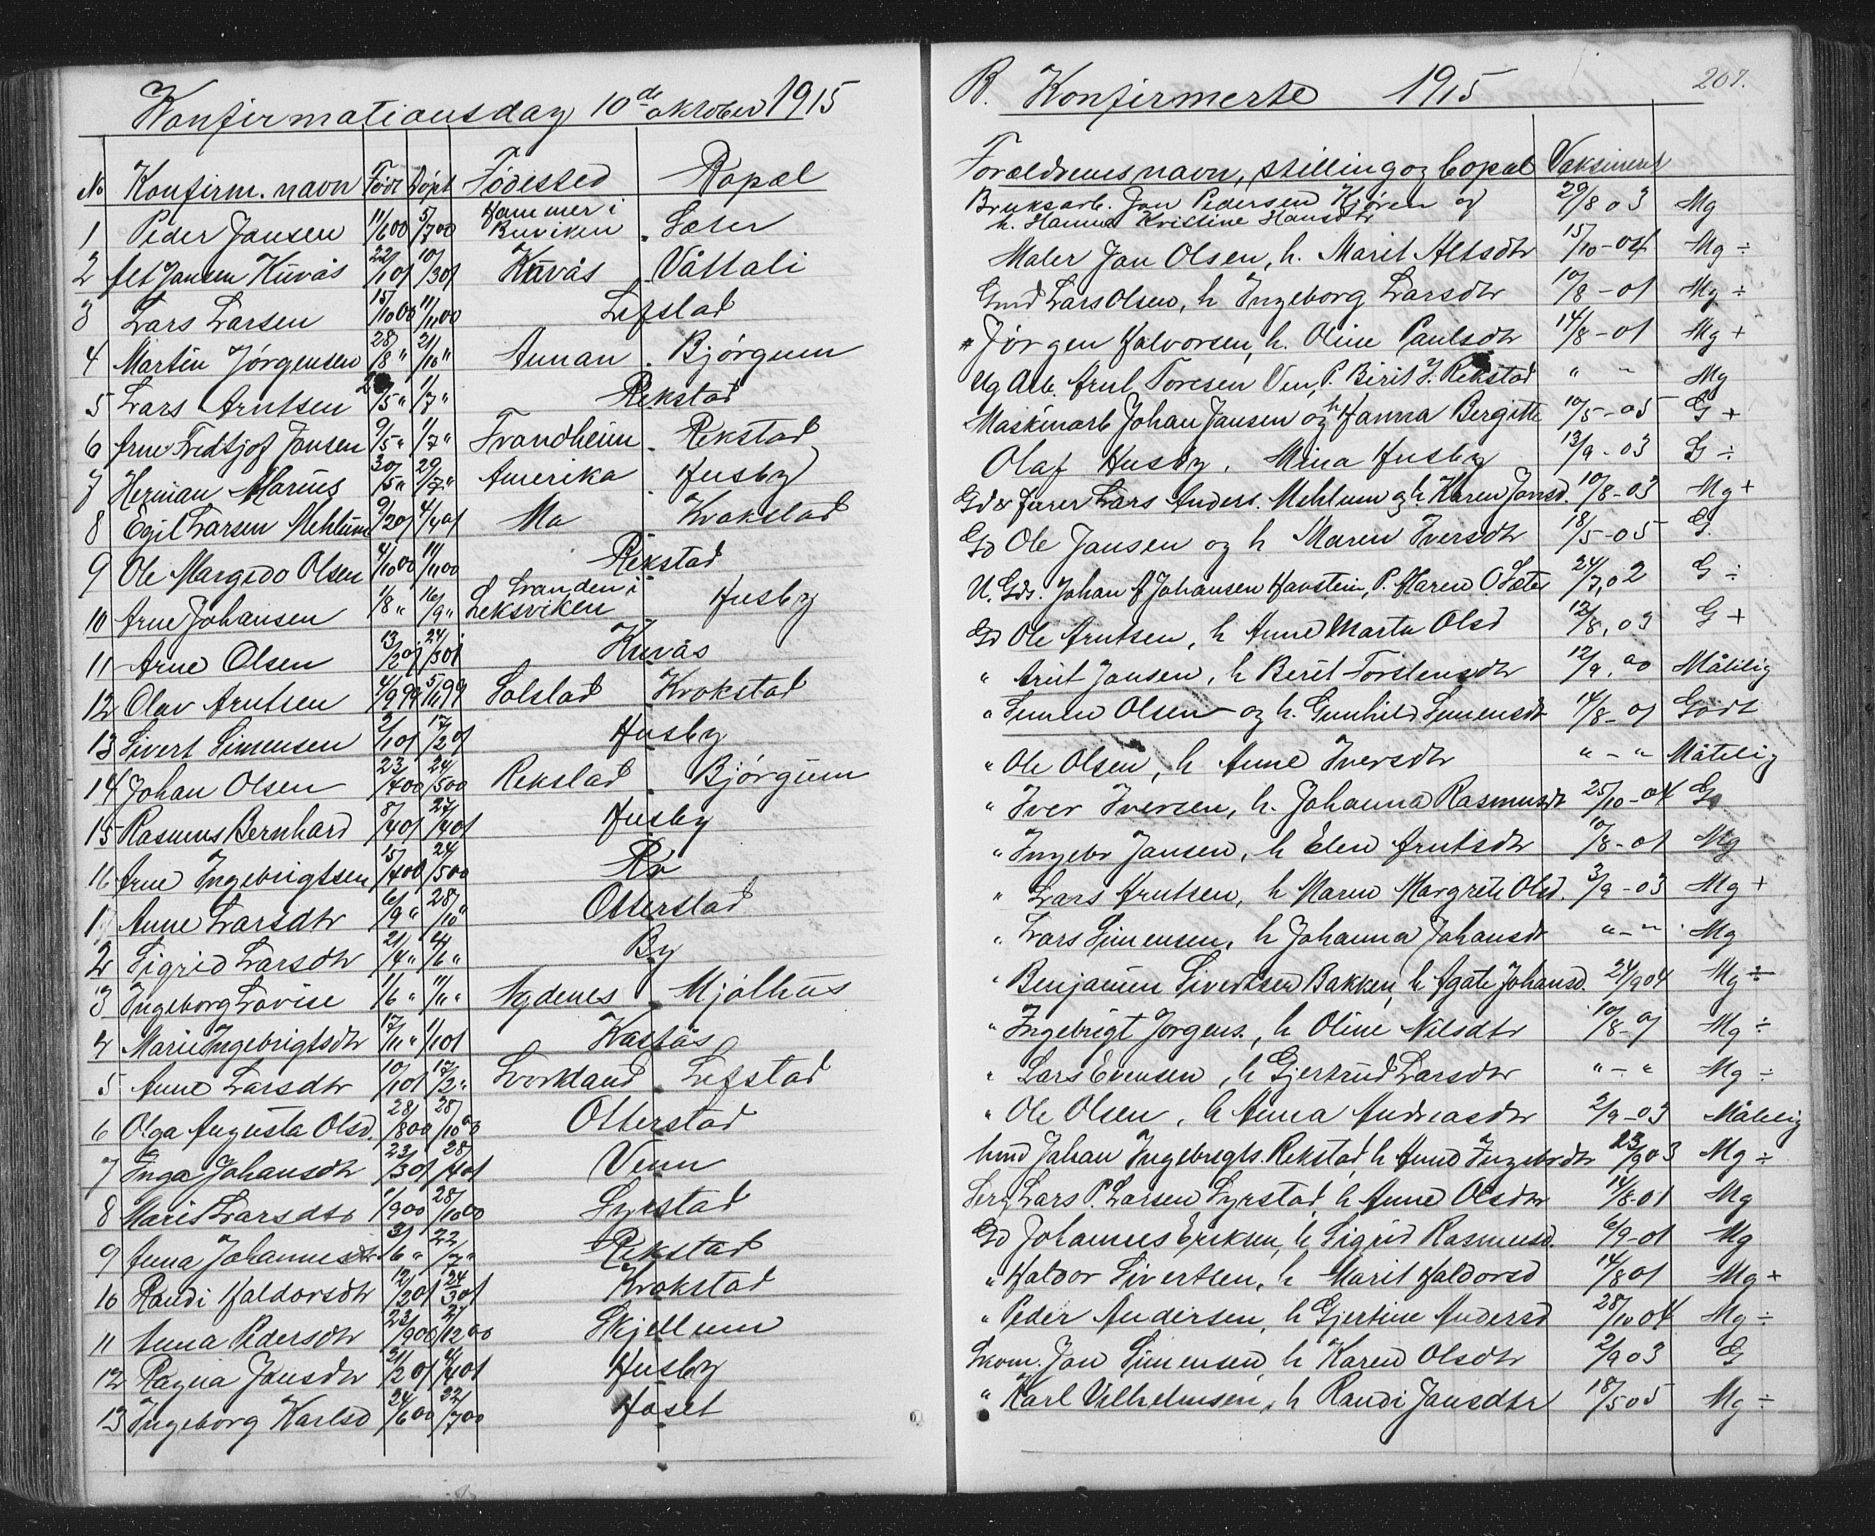 Konfirmationsdag 10de oktober 1915
No Konfirm. navn Født Døpt Fødested Bopæl
1 Peder Jansen 11/6 00 5/7 00 Hammer i Buviken Sæter
2 Alt Jansen Kuvås 22/1 01 10/3 01 Kuvås Våttali
3 Lars Larsen 15/10 00 11/11 00 Lefstad
4 Martin Jørgensen 28/8 " 21/10 " Aunan Bjørgum
5 Lars Arntsen /5 " 1/7 " Rekstad
6 Arne Fredtjof Jansen 9/5 " 1/7 " Trondheim Rekstad
7 Herman Marius 30/5 " 29/7 " Amerika Husby
8 Egil Larsen Mehlum 9/2 01 4/4 01 Mo Krokstad
9 Ole Margido Olsen 4/10 00 11/11 00 Rekstad
10 Arne Johansen 1/8 " 16/9 " Stranden i Leksviken Husby
11 Arne Olsen 13/2 01 24/3 01 Kuvås
12 Olav Arntsen 4/9 99 5/11 99 Solstad Krokstad
13 Sivert Simensen 2/1 01 17/2 01 Husby
14 Johan Olsen 23/4 00 24/5 00 Rekstad Bjørgum
15 Rasmus Bernhard 8/4 01 27/4 01 Husby
16 Arne Ingebrigtsen 15/4 00 24/5 00 Ro
1 Anne Larsdtr 6/9 " 28/10 " Otterstad
2 Sigrid Larsdtr 21/4 " 4/6 " By
3 Ingeborg Lovise 1/6 " 11/11 " Agdenes Mjølhus
4 Marie Ingebrigtsdtr 17/11 " 1/1 01 Kasfås
5 Anne Larsdtr 10/1 01 17/2 " Lefstad
6 Olga Augusta Olsd. 28/8 00 28/10 00 Otterstad
7 Inga Johansdtr 23/3 01 28/4 01 Venn
8 Marit Larsdtr 1/9 00 28/10 00 Syrstad
9 Anna Johannesdtr 3/6 " 22/7 " Rekstad
10 Randi Haldorsdtr 12/2 01 24/3 01 Krokstad
11 Anna Pedersdtr 23/9 00 2/12 00 Skjellum
12 Ragna Jansdtr 21/2 01 4/4 01 Husby
13 Ingeborg Karlsd 24/6 00 22/7 00 Foset
B. Konfirmerte 1915 207.
Forældrenes navn, stilling og bopæl Vaksinert
Bruksarb. Jon Pedersen Kjøren og h. Hanna Kristine Hansdtr 29/8 03 Mg
Maler Jan Olsen, h. Marit Altsdtr 15/10 - 04 Mg ÷
Gmd Lars Olsen, h Ingeborg Larsdtr 10/8 - 01 Mg ÷
" Jørgen Halvorsen, h. Oline Paulsdtr 14/8 - 01 Mg +
Ug Arb. Arnt Toresen Ven, P. Berit J. Rekstad " " Mg
Maskinarb Johan Jansen og h Hanna Bergitte 10/5 - 05 G +
Olaf Husby, Mina Husby 13/9 - 03 G ÷
Gd & furer Lars Anders. Mehlum og h. Karen Jonsd. 10/8 - 03 Mg +
Gd Ole Jansen og h Maren Iversdtr 18/5 - 05 G.
U. Gds. Johan A Johansen Havstein, P. Maren O Sæter 24/7, 02 G ÷
Gd Ole Arntsen, h Anne Marta Olsd 12/8, 03 G +
" Arnt Jansen, h Berit Torstensdtr 12/9, 00 Måtelig
" Simen Olsen og h. Gunhild Simensdt 14/8 - 01 Godt
" Ole Olsen, h Anne Iversdtr " - " Måtelig
" Iver Iversen, h. Johanna Rasmusdt 25/10 - 04 G
" Ingebr Jansen, h Elen Arntsdtr 10/8 - 01 Mg
" Lars Arntsen, h Maren Margrete Olsd. 3/9 - 03 Mg +
" Lars Simensen, h Johanna Johansdt " - " Mg
" Benjamin Sivertsen Bakken, h Agate Johansd. 24/9 04 Mg ÷
" Ingebrigt Jørgens., h Oline Nilsdtr 10/8 - 01 Mg ÷
" Lars Evensen, h Gjertrud Larsdtr " - " Mg ÷
" Ole Olsen, h Anna Andreasdtr 2/9 - 03 Måtelig
hmd Johan Ingebregts. Rekstad, h Anne Ingebrdtr 23/9 03 Mg ÷
Serg Lars P. Larsen Syrstad, h Anne Olsdtr 14/8 - 01 Mg
Gd Johannes Eriksen, h Sigrid Rasmusd. 6/9 - 01 Mg
" Haldor Sivertsen, h Marit Haldorsd 14/8 01 Mg +
" Peder Andersen, h Gjertine Andersd 28/10 04 Mg ÷
Skom. Jon Simensen, h Karen Olsdtr 2/9 03 G
" Karl Vilhelmsen, h Randi Jansdtr 18/5 05 Mg ÷